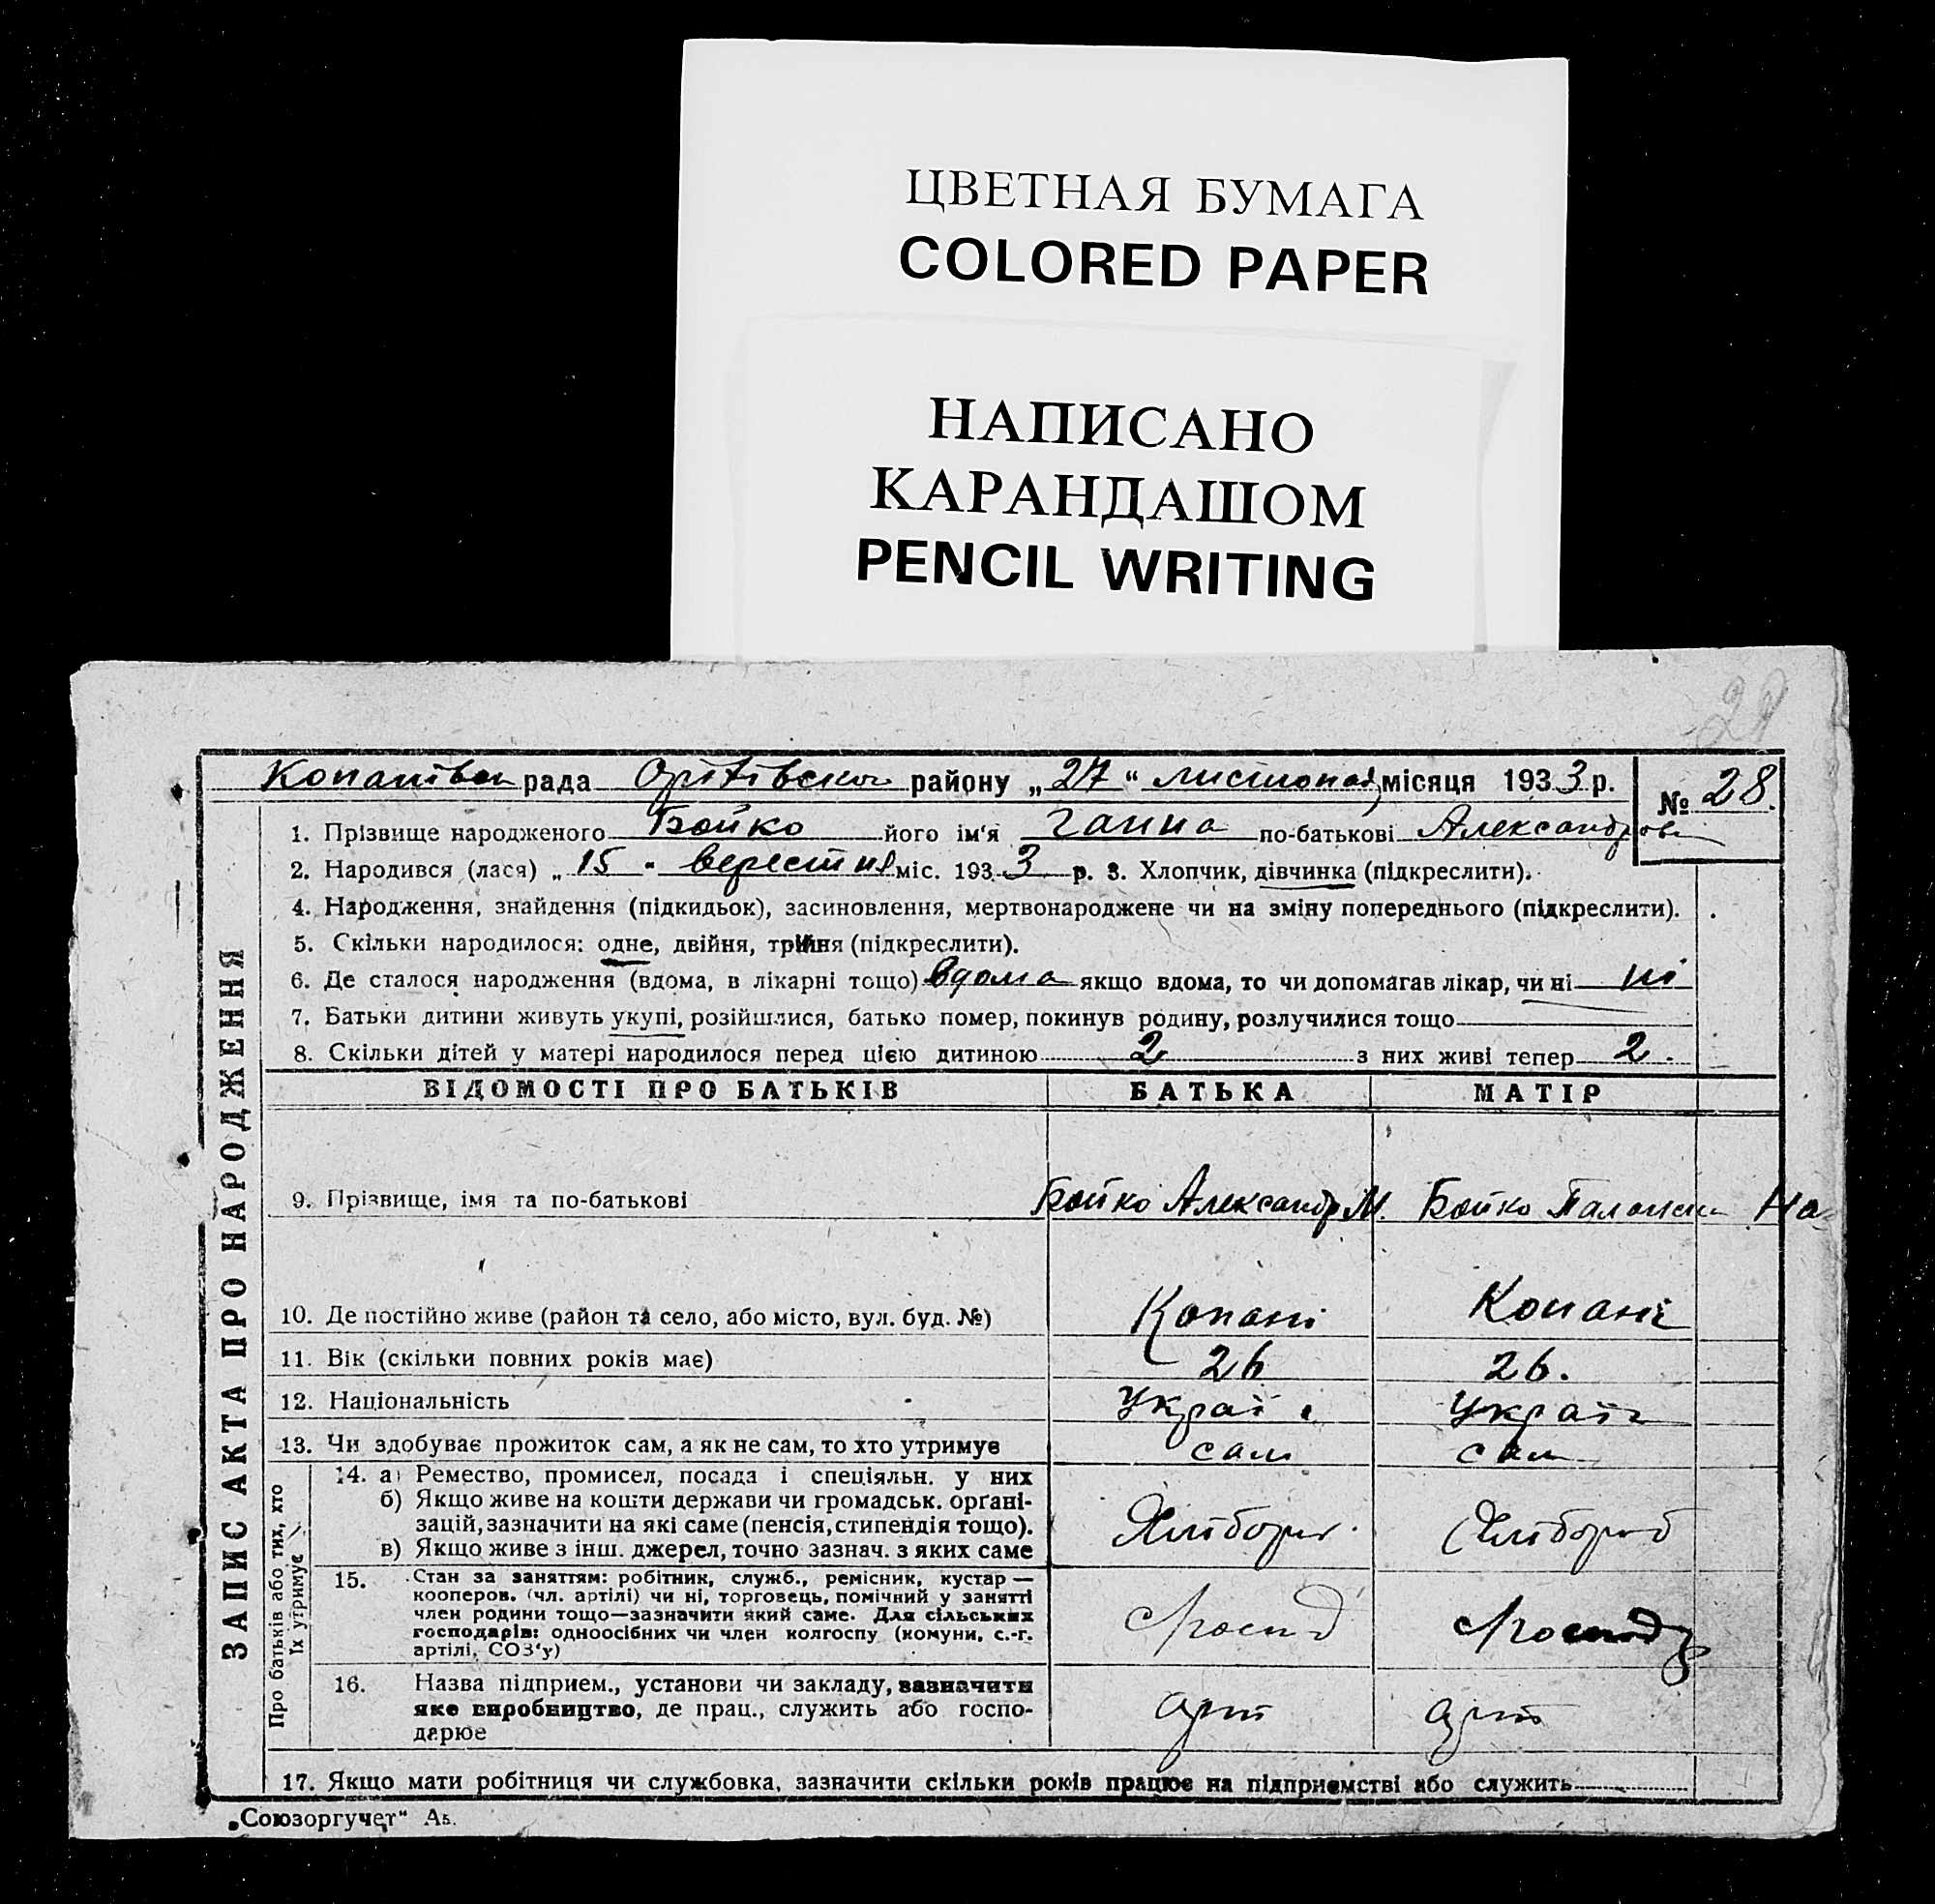 ЦВЕТНАЯ БУМАГА
COLORED PAPER
НАПИСАНО
КАРАНДАШОМ
PENCIL WRITING
28
рада Оріхівсько району „27“ листопад місяця 1933 р. № 28.
1. Прізвище народженого Бойко його ім'я Ганна по-батькові Александров
2. Народився (лася) „15" вересня міс. 1933 р. 3. Хлопчик, дівчинка (підкреслити).
4. Народження, знайдення (підкидьок), засиновлення, мертвонароджене чи на зміну попереднього (підкреслити).
5. Скільки народилося: одне, двійня, трійня (підкреслити).
6. Де сталося народження (вдома, в лікарні тощо) вдома якщо вдома, то чи допомагав лікар, чи ні ні
7. Батьки дитини живуть укупі, розійшлися, батько помер, покинув родину, розлучилися тощо
8. Скільки дітей у матері народилося перед цією дитиною 2 з них живі тепер 2.
ВІДОМОСТІ ПРО БАТЬКІВ БАТЬКА МАТІР
9. Прізвище, імя та по-батькові Бойко Александр М. Бойко На
10. Де постійно живе (район та село, або місто, вул. буд. №) Копані Копані
11. Вік (скільки повних років має) 26 26.
12. Національність Украї Україн
13. Чи здобуває прожиток сам, а як не сам, то хто утримує сам сам
14. а) Ремество, промисел, посада і спеціяльн. у них
б) Якщо живе на кошти держави чи громадськ. орґані-
зацій, зазначити на які саме (пенсія, стипендія тощо).
в) Якщо живе з інш. джерел, точно зазнач. з яких саме
Хлібороб Хлібороб
15. Стан за заняттям: робітник, служб., ремісник, кустар —
кооперов. (чл. артілі) чи ні, торговець, помічний у занятті
член родини тощо—зазначити який саме. Для сільських
господарів: одноосібних чи член колгоспу (комуни, с.-г.
артілі, СОЗ'у)
16. Назва підприєм., установи чи закладу, зазначити
яке виробництво, де прац., служить або госпо-
дарює
арт арт
17. Якщо мати робітниця чи службовка, зазначити скільки років працює на підприємстві або служить
ЗАПИС АКТА ПРО НАРОДЖЕННЯ
Про батьків або тих, хто
їх утримує
„Союзоргучет“